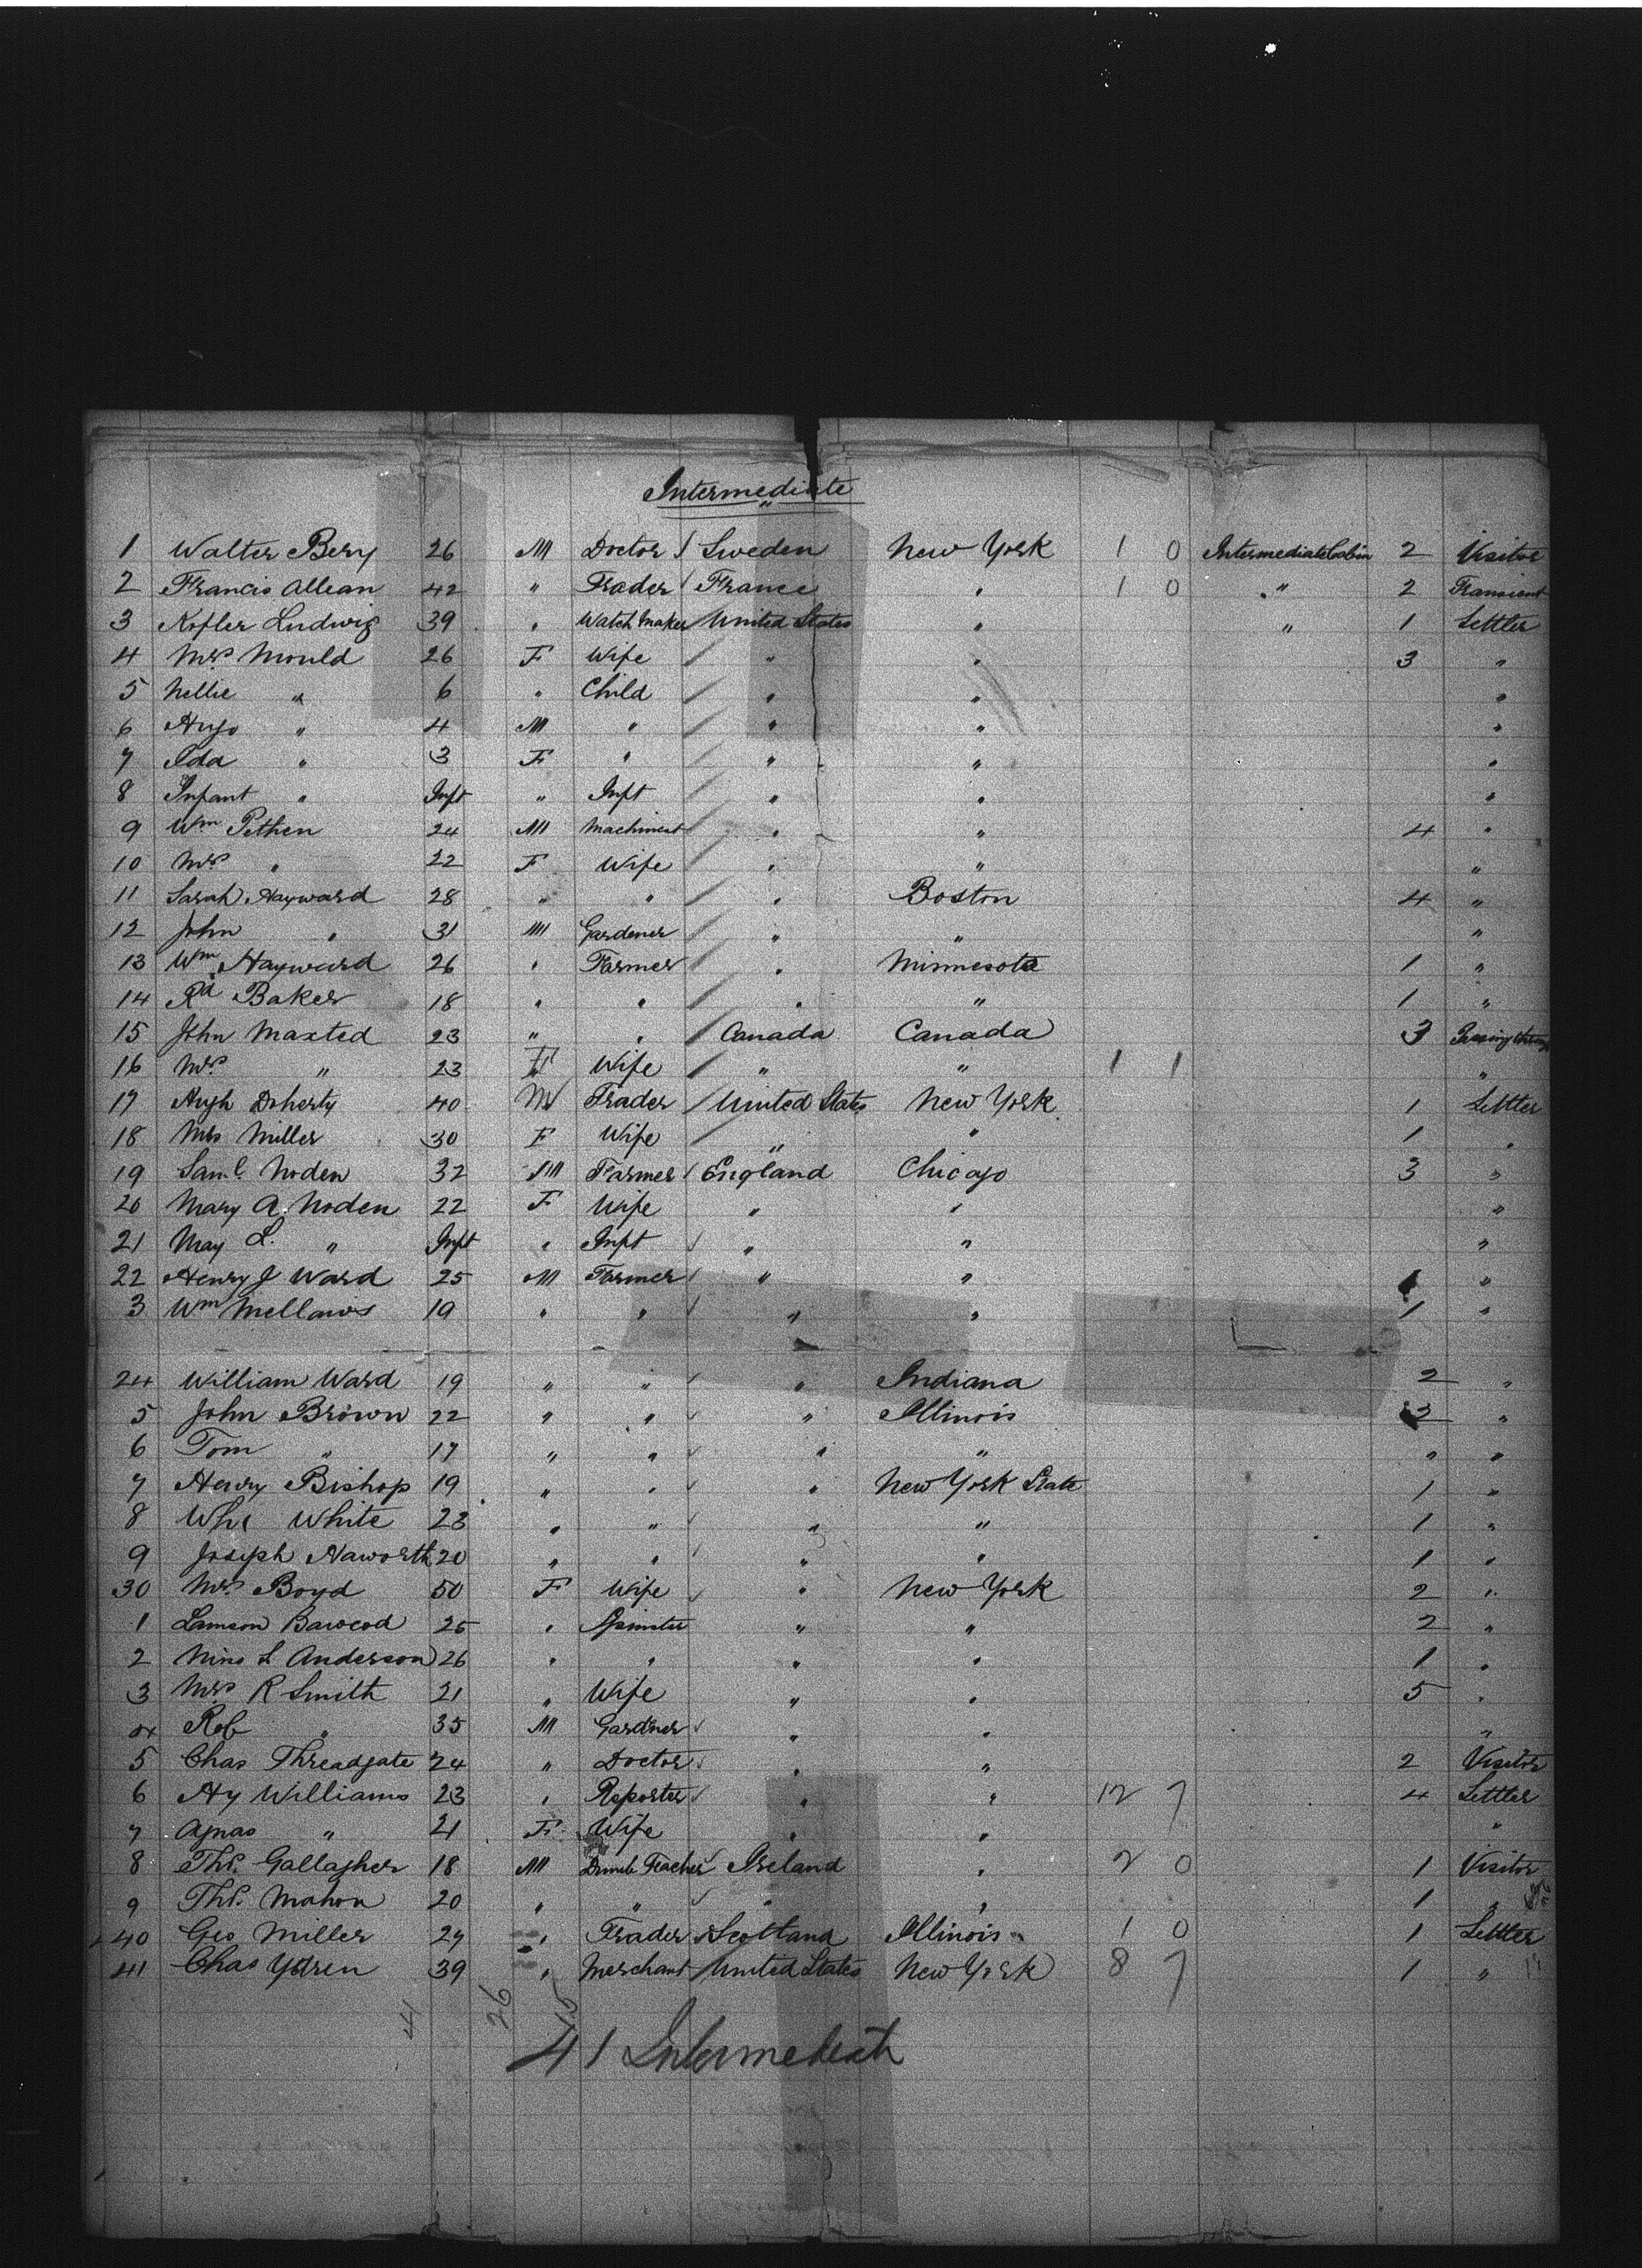 Intermediate
1 Walter Bery 26 M Doctor / Sweden New York 1 0 Intermediate Cabin 2 Visitor
2 Francis Allean 42 " Trader / France " 1 0 " 2 Transient
3 Kofler Ludwig 39 " Watch Maker / United States " " 1 Settler
4 Mrs Mould 26 F Wife / " " 3 "
5 Nellie " 6 " Child / " " "
6 Hugo " 4 M " / " " "
7 Ida " 3 F " / " " "
8 Infant " Inft " Inft / " " "
9 Wm Pethen 24 M Machinest / " " 4 "
10 Mrs " 22 F Wife / " " "
11 Sarah Hayward 28 " " / " Boston 4 "
12 John " 31 M Gardener / " " "
13 Wm Hayward 26 " Farmer / " Minnesota 1 "
14 Rd Baker 18 " " / " " 1 "
15 John Maxted 23 " " / Canada Canada 3 Passing through
16 Mrs " 23 F Wife / " " 1 1 "
17 Hugh Doherty 40 M Trader / United States New York 1 Settler
18 Mrs Miller 30 F Wife / " " 1 "
19 Saml Noden 32 M Farmer / England Chicago 3 "
20 Mary A. Noden 22 F Wife " " "
21 May L. " Inft " Inft ✓ " " "
22 Henry J Ward 25 M Farmer / " " "
3 Wm Mellaws 19 " " / " " 1 "
24 William Ward 19 " " ✓ " Indiana 2 "
5 John Brown 22 " " ✓ " Illinois 2 "
6 Tom " 17 " " ✓ " " " "
7 Henry Bishop 19 " " ✓ " New York State 1 "
8 White 23 " " ✓ " " 1 "
9 Joseph Haworth 20 " " / " " 1 "
30 Mrs Boyd 50 F Wife ✓ " New York 2 "
1 Lamson 25 " Spinster " " 2 "
2 L Anderson 26 " " " " 1 "
3 Mrs R Smith 21 " Wife " " 5 "
4 Rob " 35 M Gardner ✓ " " "
5 Chas Threadgate 24 " Doctor ✓ " " 2 Visitor
6 Hy Williams 23 " Reporter ✓ " " 12 7 4 Settler
7 Agnes " 21 F Wife " " "
8 Thos. Gallagher 18 M Teacher ✓ Ireland " 2 0 1 Visitor
9 Thos. Mahon 20 " " ✓ " " 1 "
40 Geo Miller 27 " Trader Scotland Illinois 1 0 1 Settler
41 Chas 39 " Merchant / United States New York 8 7 1 "
41 26 15
41 Intermediate